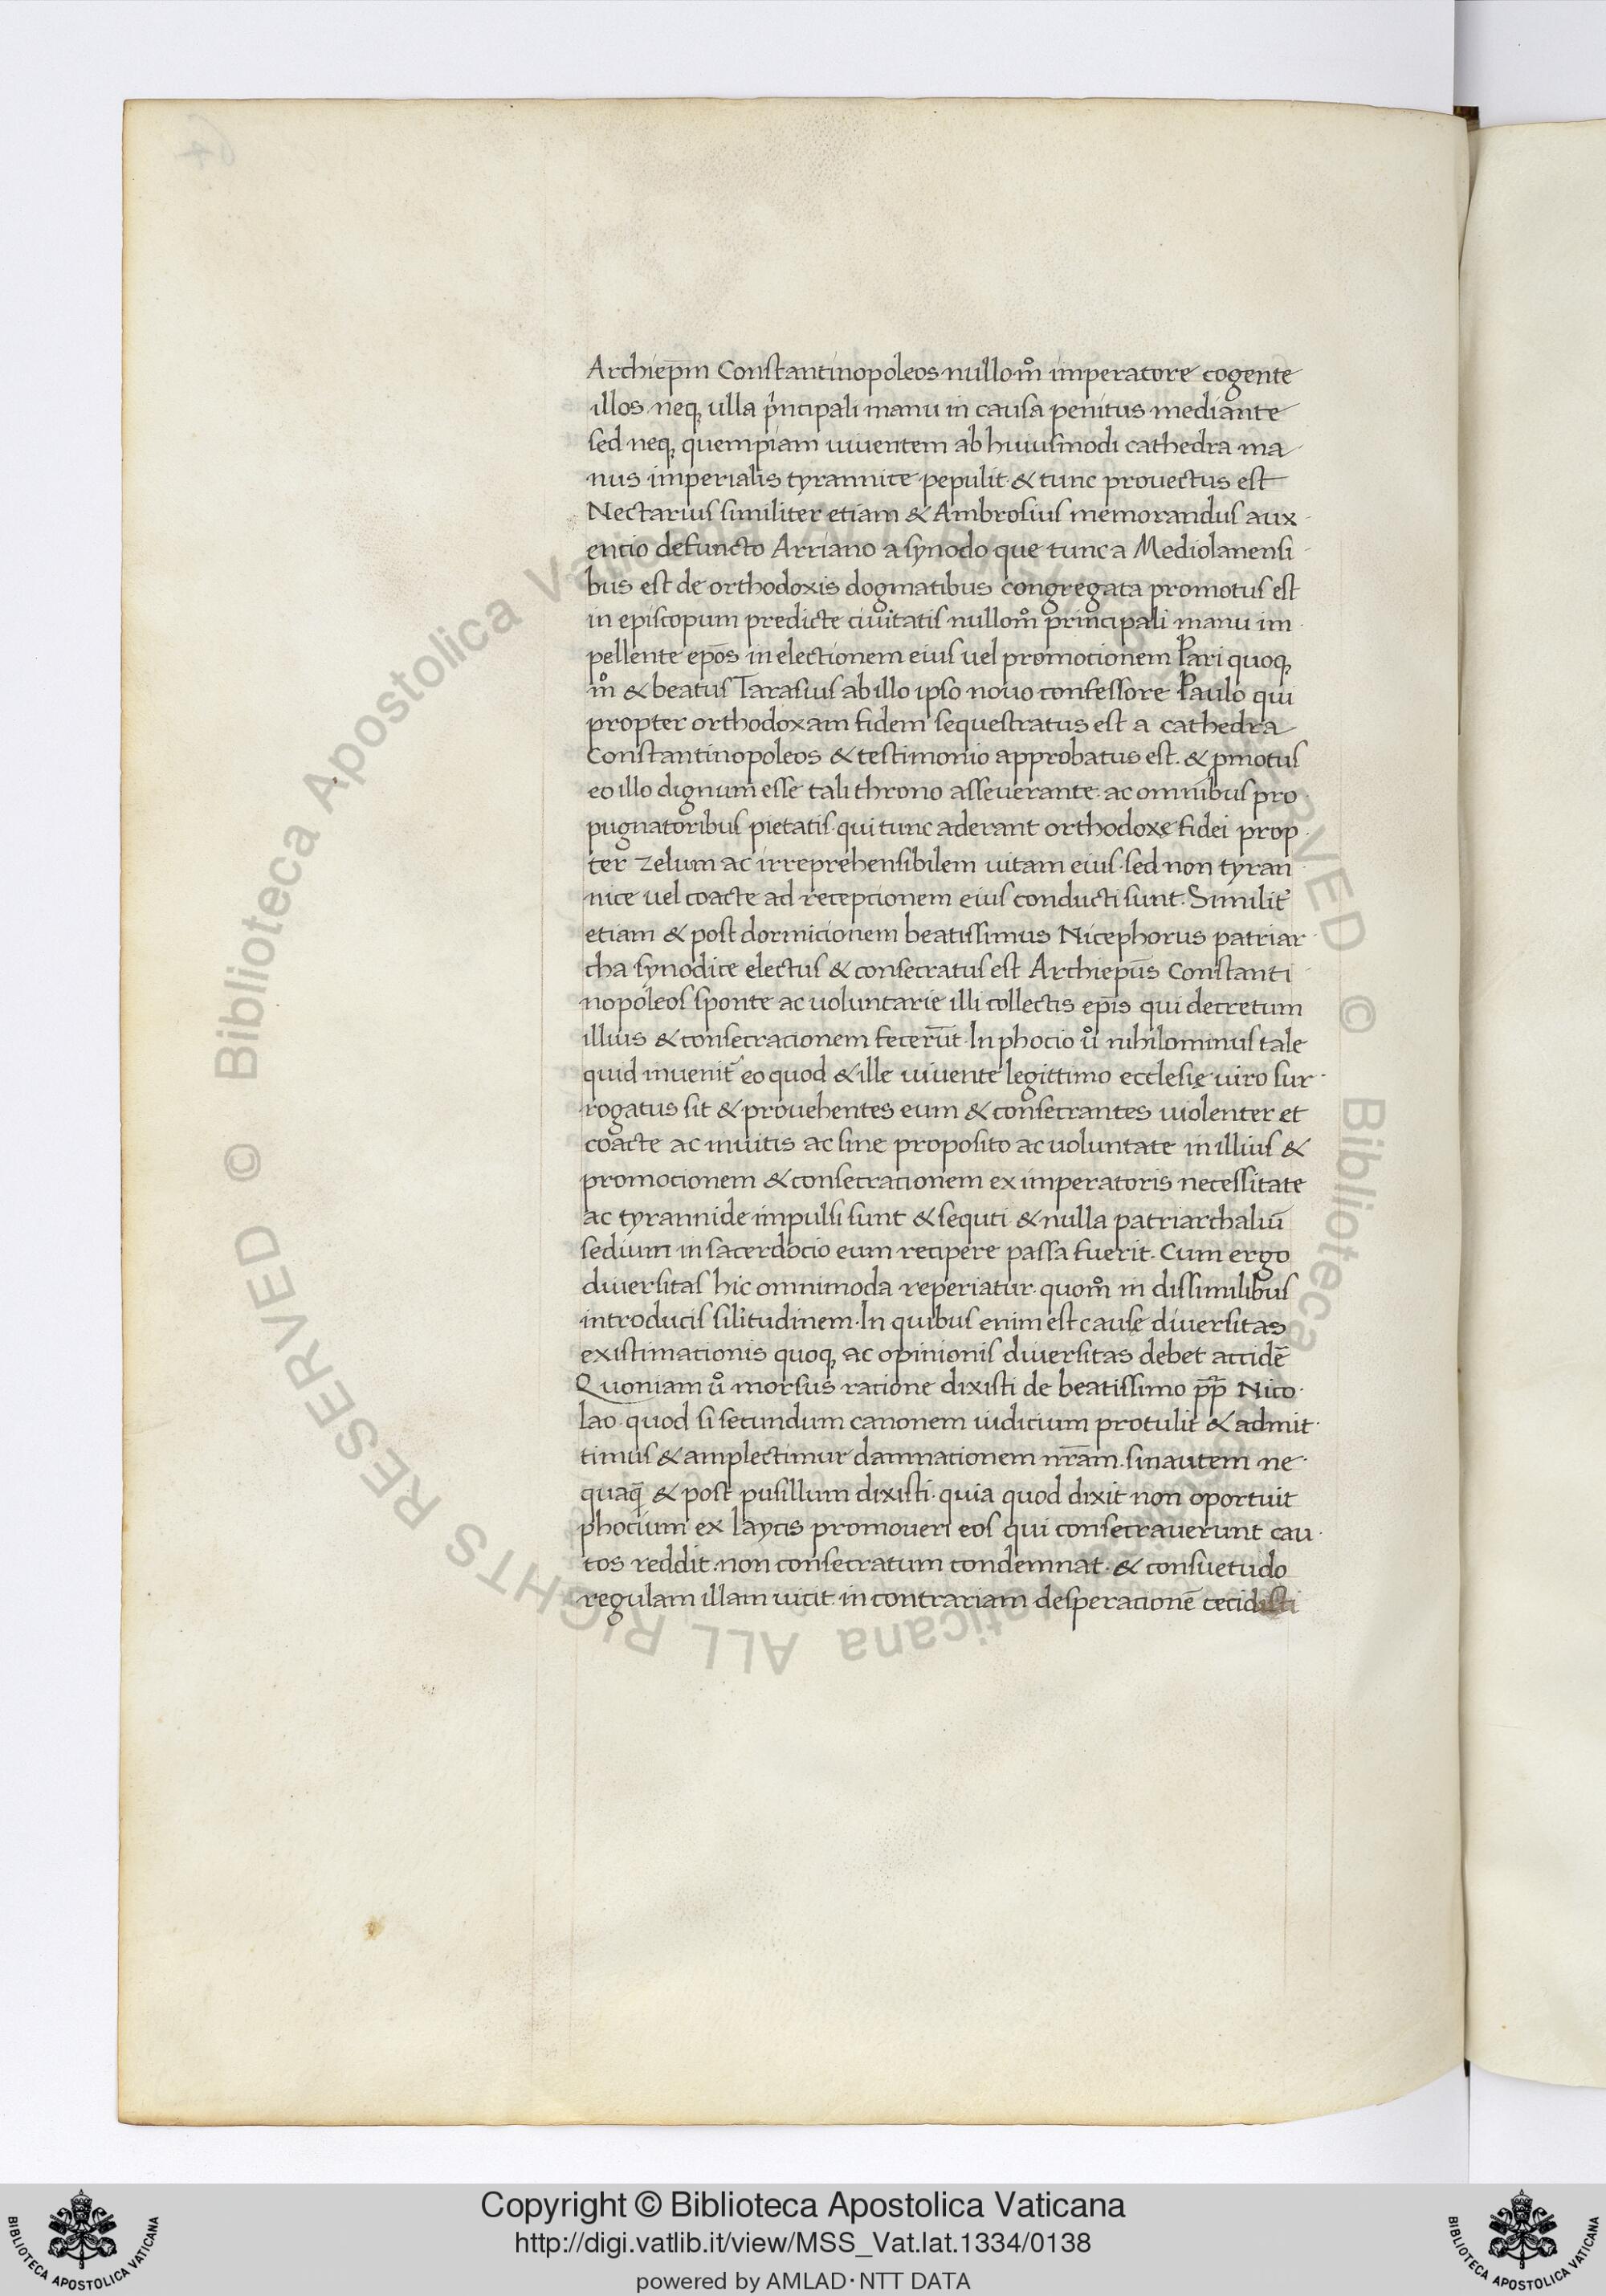 Archiep̅m Constantinopoleos nullom̊ imperatore cogente
illos neq; ulla pͥncipali manu in causa penitus mediante
sed neq; quempiam uiuentem ab huiusmodi cathedra ma
nus imperialis tyrannice pepulit & tunc prouectus est
Nectarius similiter etiam & Ambrosius memorandus aux
entio defuncto Arriano a synodo que tunc a Mediolanensi
bus est de orthodoxis dogmatibus congregata promotus est
in episcopum predicte ciuitatis nullom̊ principali manu im
pellente ep̅os in electionem eius uel promotionem Pari quoq;
m̊ & beatus Tarasius ab illo ipso nouo confessore Paulo qui
propter orthodoxam fidem sequestratus est a cathedra
Constantinopoleos & testimonio approbatus est. & ꝓmotus
eo illo dignum esse tali throno asseuerante. ac omnibus pro
pugnatoribus pietatis. qui tunc aderant orthodoxę fidei prop
ter zelum ac irreprehensibilem uitam eius. sed non tyran
nice uel coacte ad receptionem eius conducti sunt. Similit̛
etiam & post dormicionem beatissimus Nicephorus patriar
cha synodice electus & consecratus est Archiep̅us Constanti
nopoleos sponte ac uoluntarie illi collectis ep̅is qui decretum
illius & consecracionem fecerūt. In phocio ů nihilominus tale
quid inuenit̛ eo quod & ille uiuente legittimo ecclesię uiro sur
rogatus sit & prouehentes eum & consecrantes uiolenter et
coacte ac inuitis ac sine proposito ac uoluntate in illius &
promocionem & consecracionem ex imperatoris necessitate
ac tyrannide impulsi sunt & sequti & nulla patriarchaliū
sedium in sacerdocio eum recipere passa fuerit. Cum ergo
diuersitas hic omnimoda reperiatur. quom̊ in dissimilibus
introducis sil̛itudinem. In quibus enim est causę diuersitas
existimationis quoq; ac opinionis diuersitas debet accidē
Quoniam ů morsus racione dixisti de beatissimo p̅p̅ Nico
lao quod si secundum canonem iudicium protulit & admit
timus & amplectimur damnationem nr̅am. sin autem ne
quaq̅ & post pusillum dixisti. quia quod dixit non oportuit
phocium ex laycis promoueri eos qui consecrauerunt cau
tos reddit. non consecratum condemnat. & consuetudo
regulam illam uicit in contrariam desperacionē cecidisti
Copyright © Biblioteca Apostolica Vaticana
http://digi.vatlib.it/view/MSS_Vat.lat.1334/0138
powered by AMLAD·NTT DATA
BIBLIOTECA APOSTOLICA VATICANA
BIBLIOTECA APOSTOLICA VATICANA
© Biblioteca Apostolica Vaticana ALL RIGHTS RESERVED
© Biblioteca Apostolica Vaticana ALL RIGHTS RESERVED